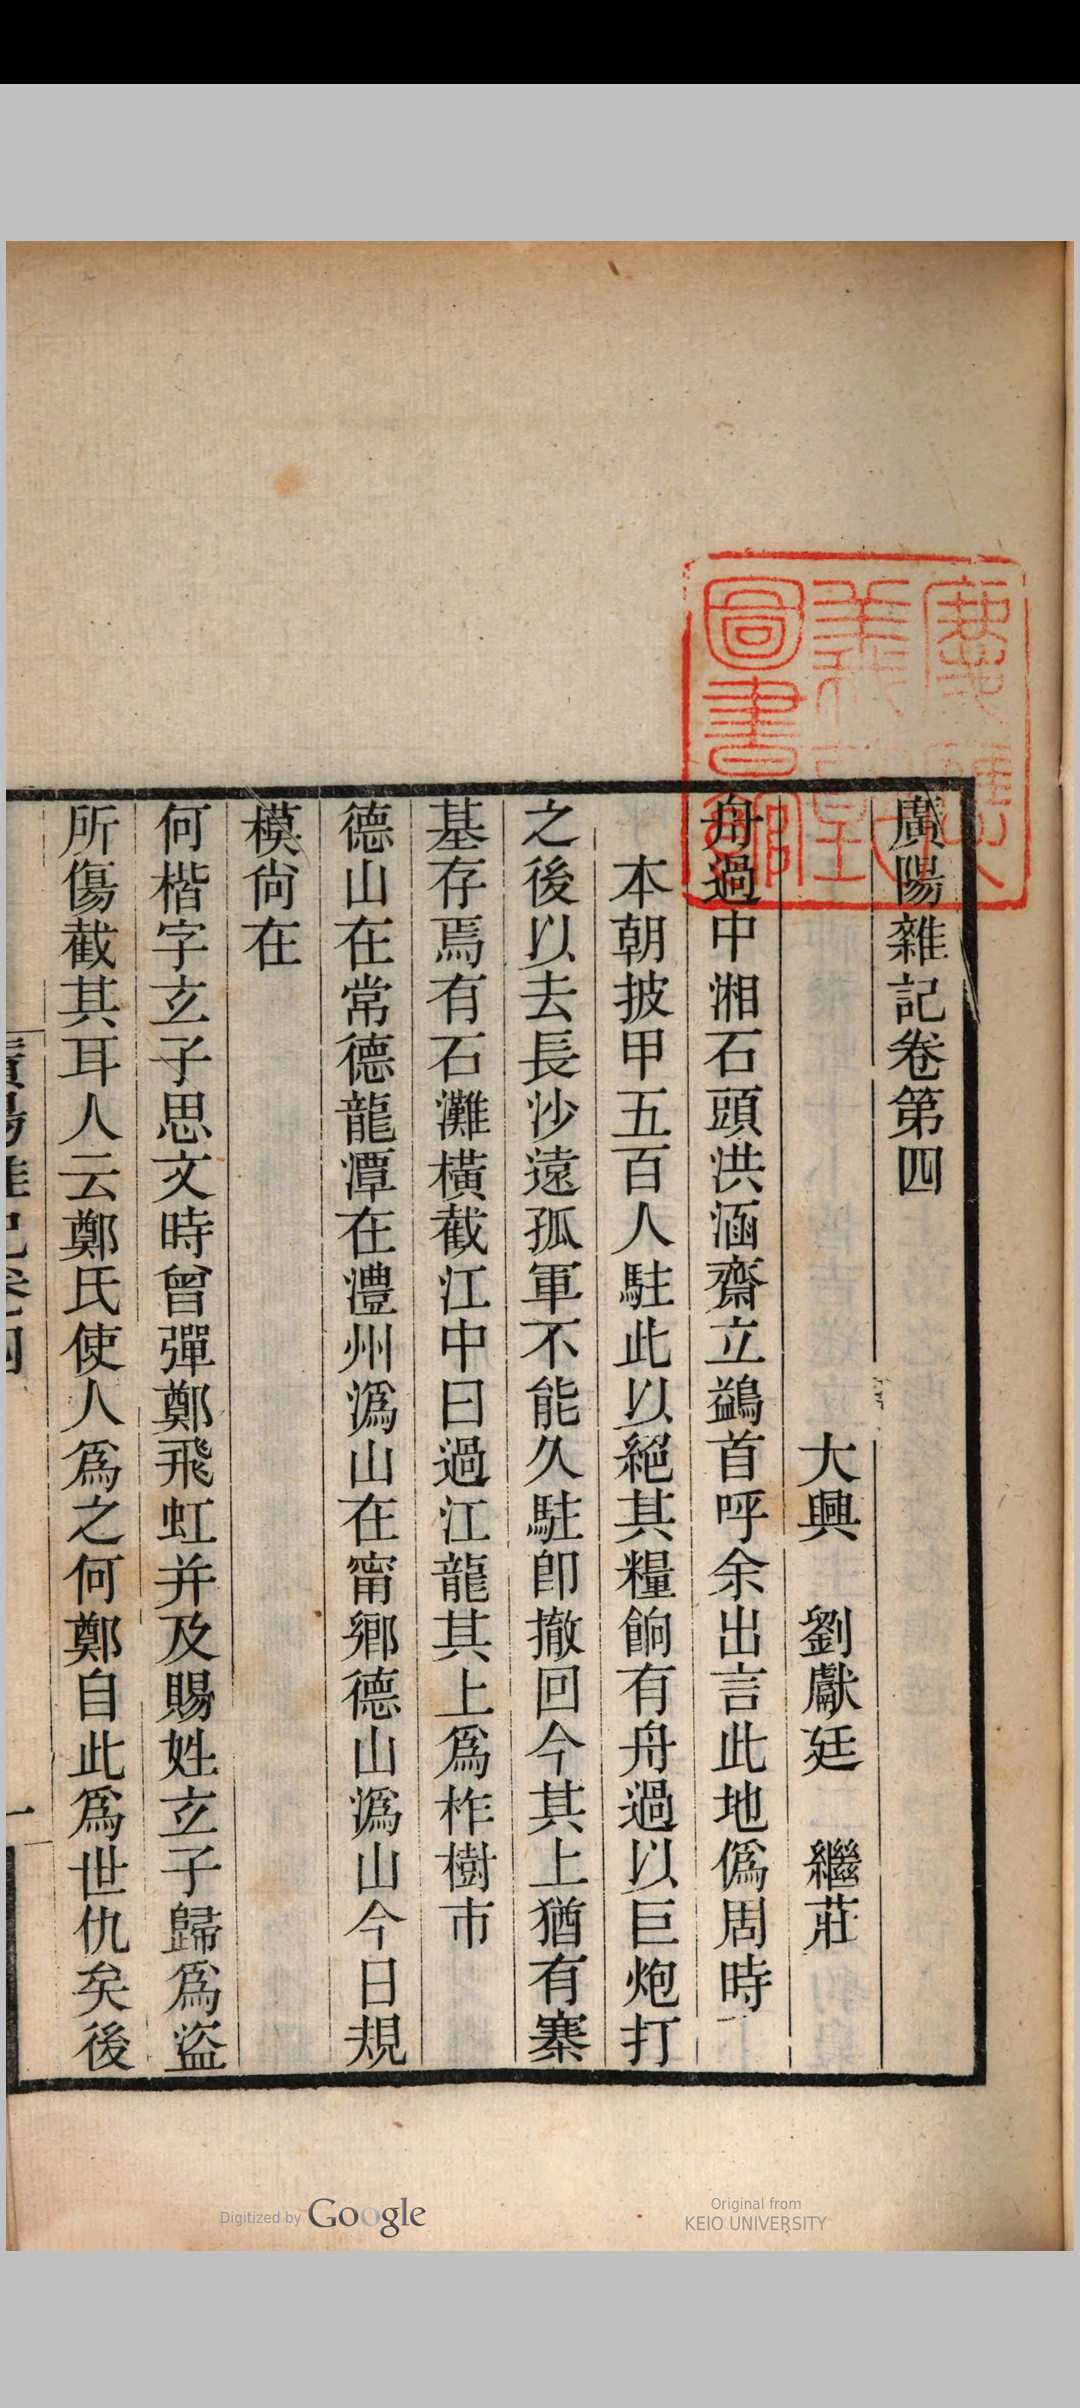 廣陽雜記卷第四
大興　劉獻廷　繼莊
舟過中湘石頭洪涵齋立鷁首呼余出言此地僞周時
本朝披甲五百人駐此以絕其糧餉有舟過以巨炮打
之後以去長沙遠孤軍不能久駐卽撤回今其上猶有寨
基存焉有石灘橫截江中曰過江龍其上爲柞樹市
德山在常德龍潭在澧州潙山在甯鄉德山潙山今日規
模尙在
何楷字玄子思文時曾彈鄭飛虹并及賜姓玄子歸爲盜
所傷截其耳人云鄭氏使人爲之何鄭自此爲世仇矣後
廣陽雜記卷四
一
Digitized by Google
Original from
KEIO UNIVERSITY